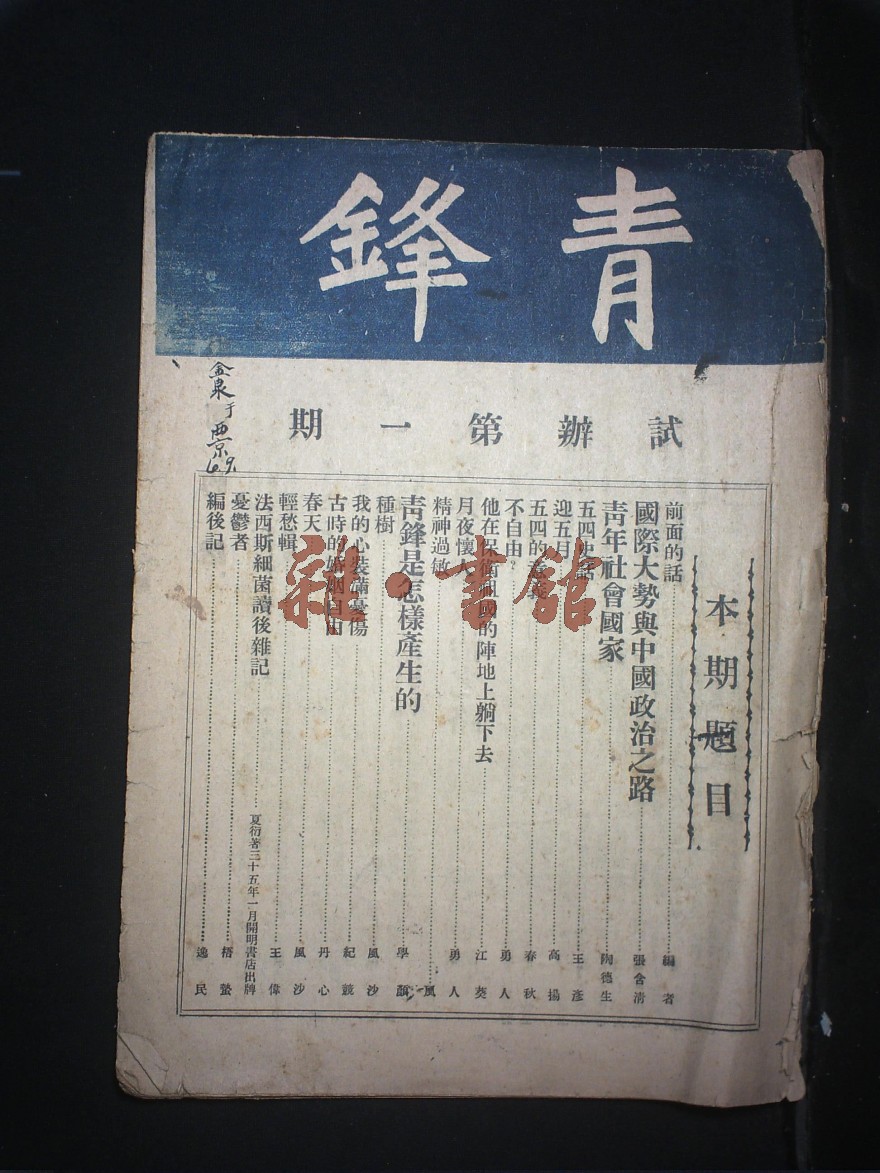 青鋒
試辦第一期
金泉
于
西京
6.9.
本期題目
前面的話 編者
國際大勢與中國政治之路 張含清
靑年社會國家 陶德生
五四史話 王彥
迎五月 高揚
五四的 春秋
不自由? 勇人
他在保衛祖國的陣地上躺下去 江葵
月夜懷人 勇人
精神過敏 風
靑鋒是怎樣產生的 學
種樹 風沙
我的心裝滿憂傷 紀競
古時的婚姻自由 丹心
春天 風沙
輕愁輯 王偉
法西斯細菌讀後雜記 夏衍著三十五年一月開明書店出牌
憂鬱者 梧螢
編後記 逸民
雜·書館